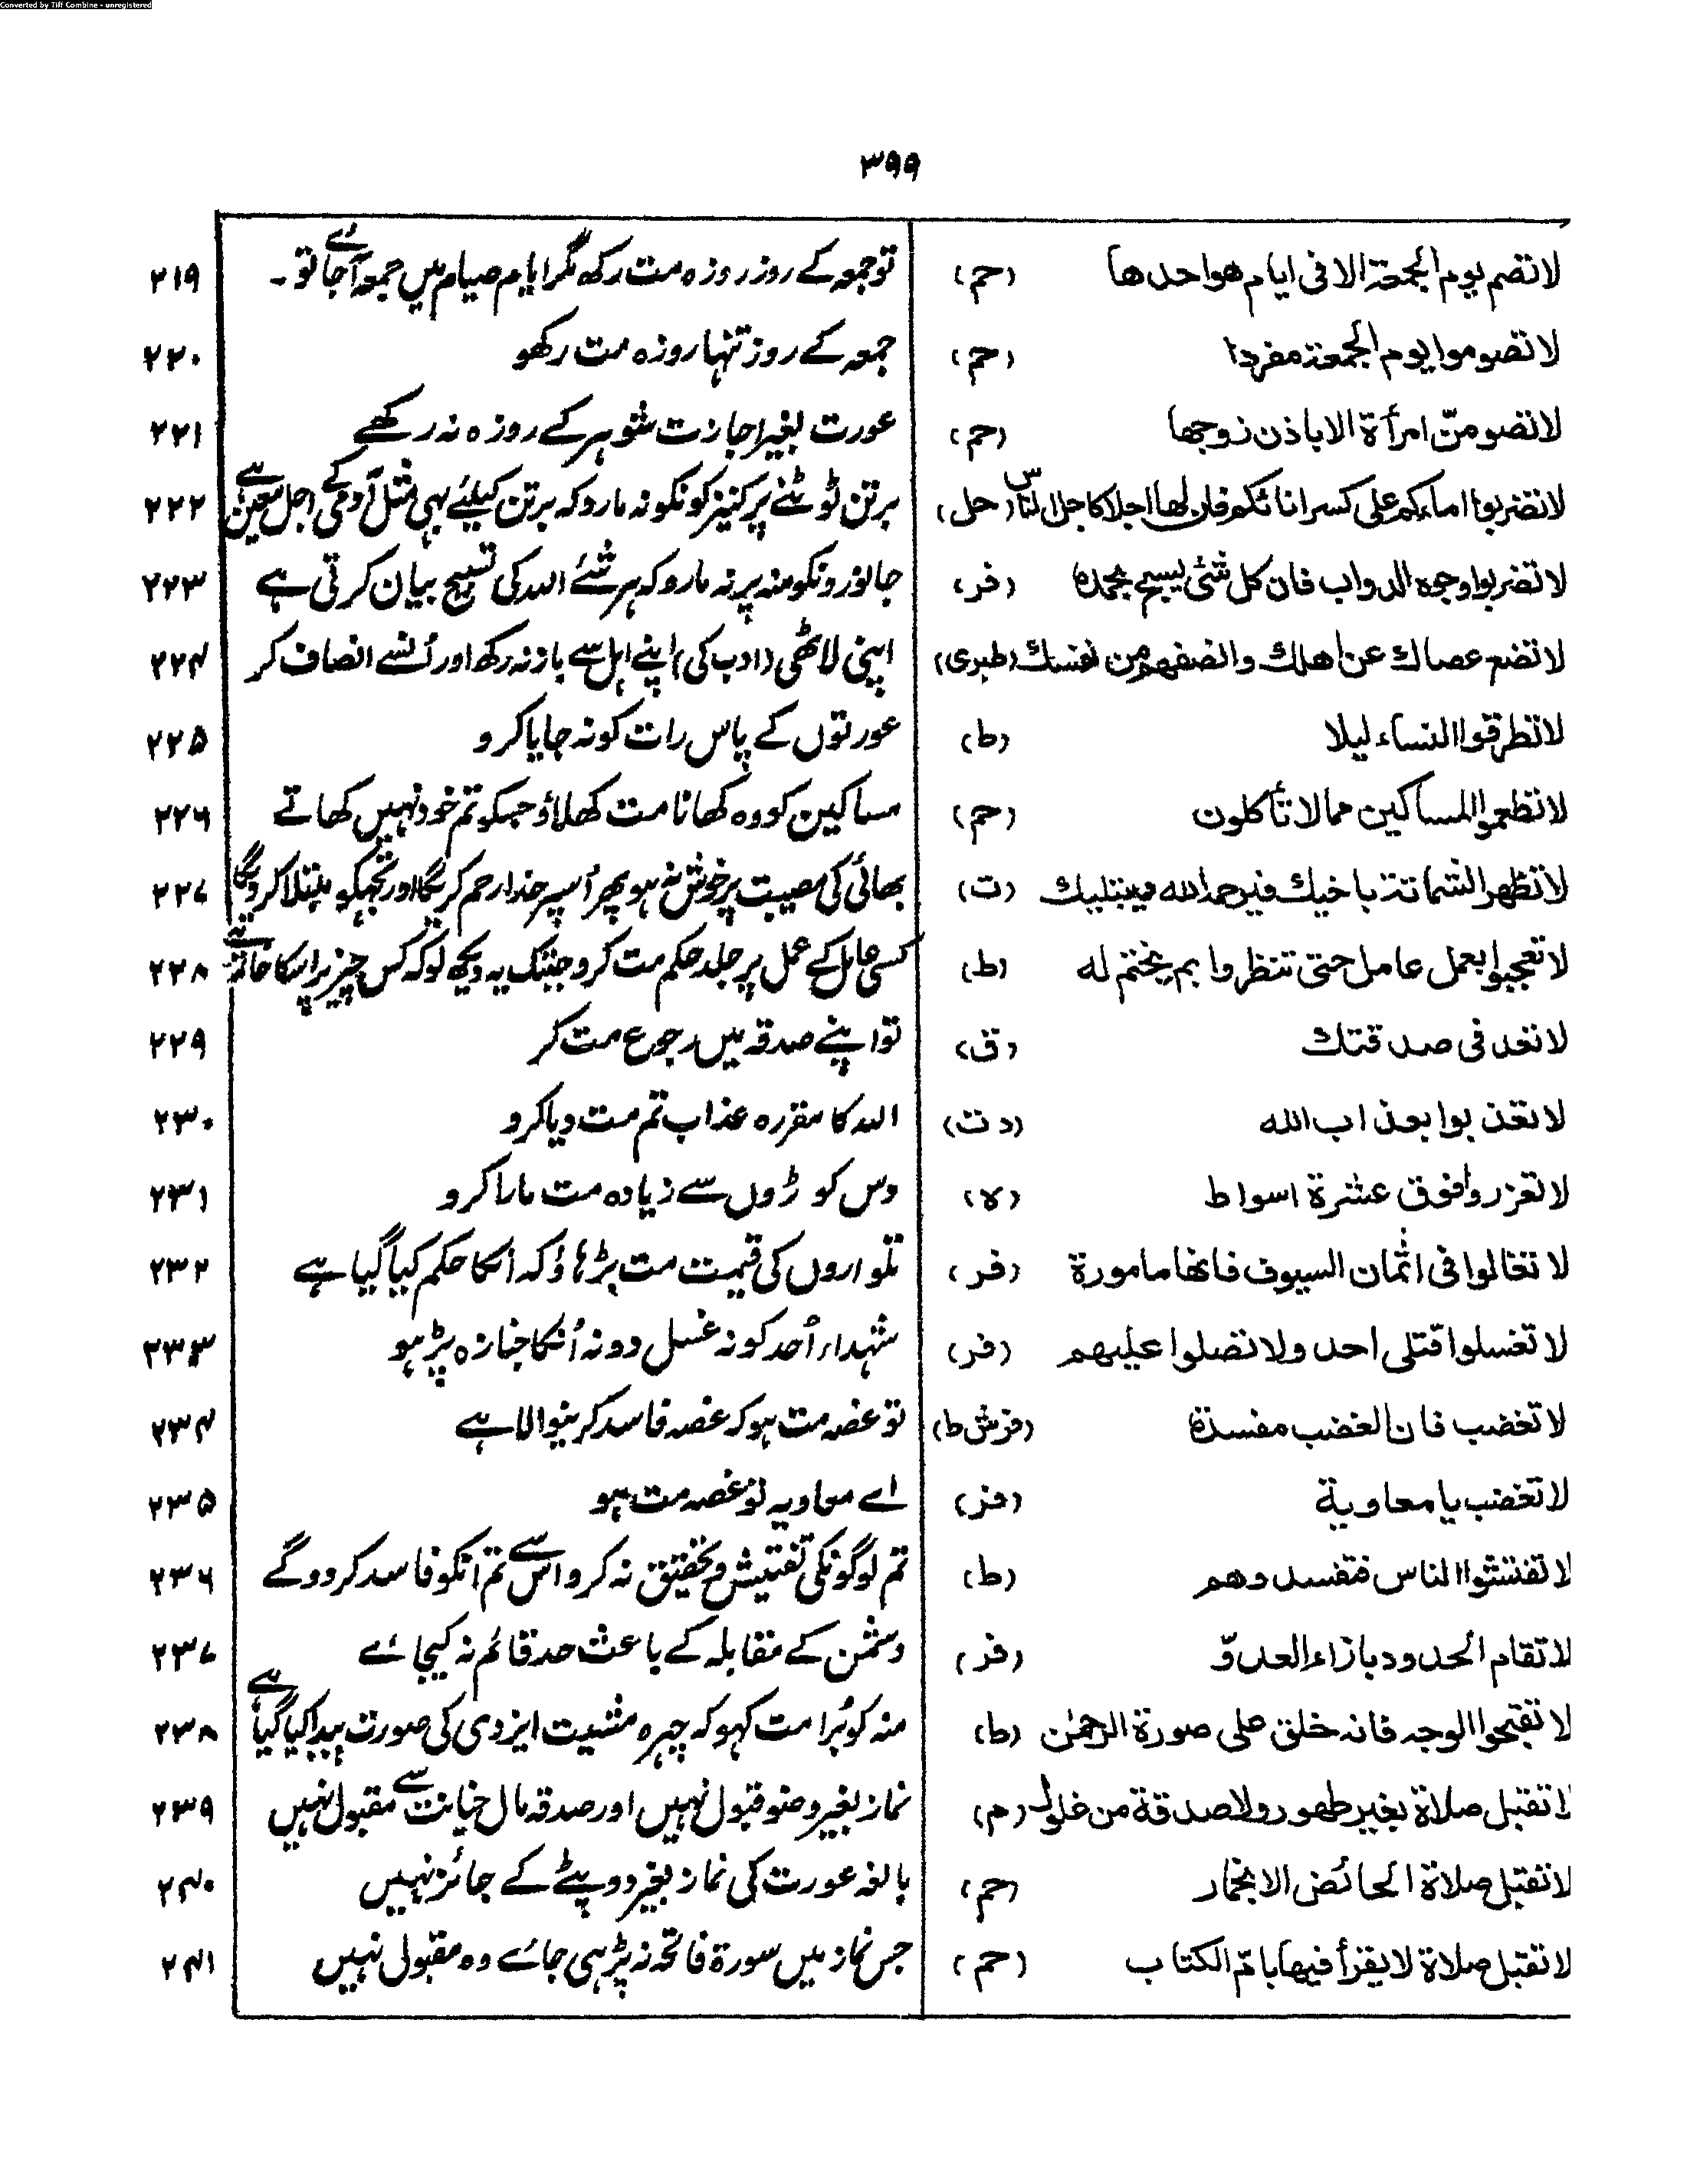 Converted by Tiff Combine - unregistered
۳۹۹
لا تصم يوم الجمعة الا فى ايام هو احدها (حم) تو جمعہ کے روز روزہ مت رکھ مگر ایام صیام میں جمعہ آجائے تو۔ ۲۱۹
لا تصوموا يوم الجمعة مفردا (حم) جمعہ کے روز تنہا روزہ مت رکھو ۲۲۰
لا تصومنّ امرأة الا باذن زوجها (حم) عورت بغیر اجازت شوہر کے روزہ نہ رکھے ۲۲۱
لا تضربوا اماءكم على كسر انائكم فان لها اجلا كاجال الناس (حل) برتن ٹوٹنے پر کنیزکونکو نہ مارو کہ برتن کیلئے بہی مثل آدمی کے اجل معین ہے ۲۲۲
لا تضربوا وجوه الدواب فان كل شئى يسبح بحمده (فر) جانورونکو منہ پر نہ مارو کہ ہر شئے اللہ کی تسبیح بیان کرتی ہے ۲۲۳
لا تضع عصاك عن اهلك وانصفهم من نفسك (طبرى) اپنی لاٹھی (ادب کی) اپنے اہل سے باز نہ رکھ اور اُنسے انصاف کر ۲۲۴
لا تطرقوا النساء ليلا (ط) عورتوں کے پاس رات کو نہ جایا کرو ۲۲۵
لا تطعموا المساكين مما لا تأكلون (حم) مساکین کو وہ کھانا مت کھلاؤ جسکو تم خود نہیں کھاتے ۲۲۶
لا تظهر الشماتة باخيك فيرحمه الله ويبتليك (ت) بھائی کی مصیبت پر خوش نہ ہو پھر اُسپر خدا رحم کریگا اور تجہکو مبتلا کر دیگا ۲۲۷
لا تعجبوا بعمل عامل حتى تنظروا بم يختم له (ط) کسی عامل کے عمل پر جلد حکم مت کرو جبتک یہ دیکھ لو کہ کس چیز پر اسکا خاتمہ ۲۲۸
لا تعد فى صدقتك (ق) تو اپنے صدقہ میں رجوع مت کر ۲۲۹
لا تعذبوا بعذاب الله (دت) اللہ کا مقررہ عذاب تم مت دیا کرو ۲۳۰
لا تعزروا فوق عشرة اسواط (ه) دس کوڑوں سے زیادہ مت مارا کرو ۲۳۱
لا تغالوا فى اثمان السيوف فانها مامورة (فر) تلواروں کی قیمت مت بڑہاؤ کہ اسکا حکم کیا گیا ہے ۲۳۲
لا تغسلوا قتلى احد ولا تصلوا عليهم (فر) شہداء اُحد کو نہ غسل دو نہ اُنکا جنازہ پڑہو ۲۳۳
لا تغضب فان الغضب مفسدة (فرش ط) تو غصہ مت ہو کہ غصہ فاسد کرنیوالا ہے ۲۳۴
لا تغضب يا معاوية (فر) اے معاویہ تو غصہ مت ہو ۲۳۵
لا تفتشوا الناس فتفسدوهم (ط) تم لوگونکی تفتیش و تحقیق نہ کرو اس سے تم انکو فاسد کر دوگے ۲۳۶
لا تقام الحدود بازاء العدوّ (فر) دشمن کے مقابلہ کے باعث حد قائم نہ کیجائے ۲۳۷
لا تقبحوا الوجه فانه خلق على صورة الرحمٰن (ط) منہ کو بُرا مت کہو کہ چہرہ مشیت ایزدی کی صورت پیدا کیا گیا ہے ۲۳۸
لا تقبل صلاة بغير طهور ولا صدقة من غلول (م) نماز بغیر وضو قبول نہیں اور صدقہ مال خیانت سے مقبول نہیں ۲۳۹
لا تقبل صلاة الحائض الا بخمار (حم) بالغہ عورت کی نماز بغیر دوپٹے کے جائز نہیں ۲۴۰
لا تقبل صلاة لا يقرأ فيها بامّ الكتاب (حم) جس نماز میں سورۃ فاتحہ نہ پڑہی جائے وہ مقبول نہیں ۲۴۱